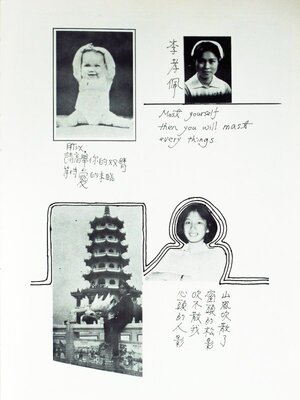 李孝佩
Mast yourself
then you will mast
every things
請高舉你的双臂
等待愛的来臨
山風吹散了
窗頭的松影
吹不散我
心頭的人影